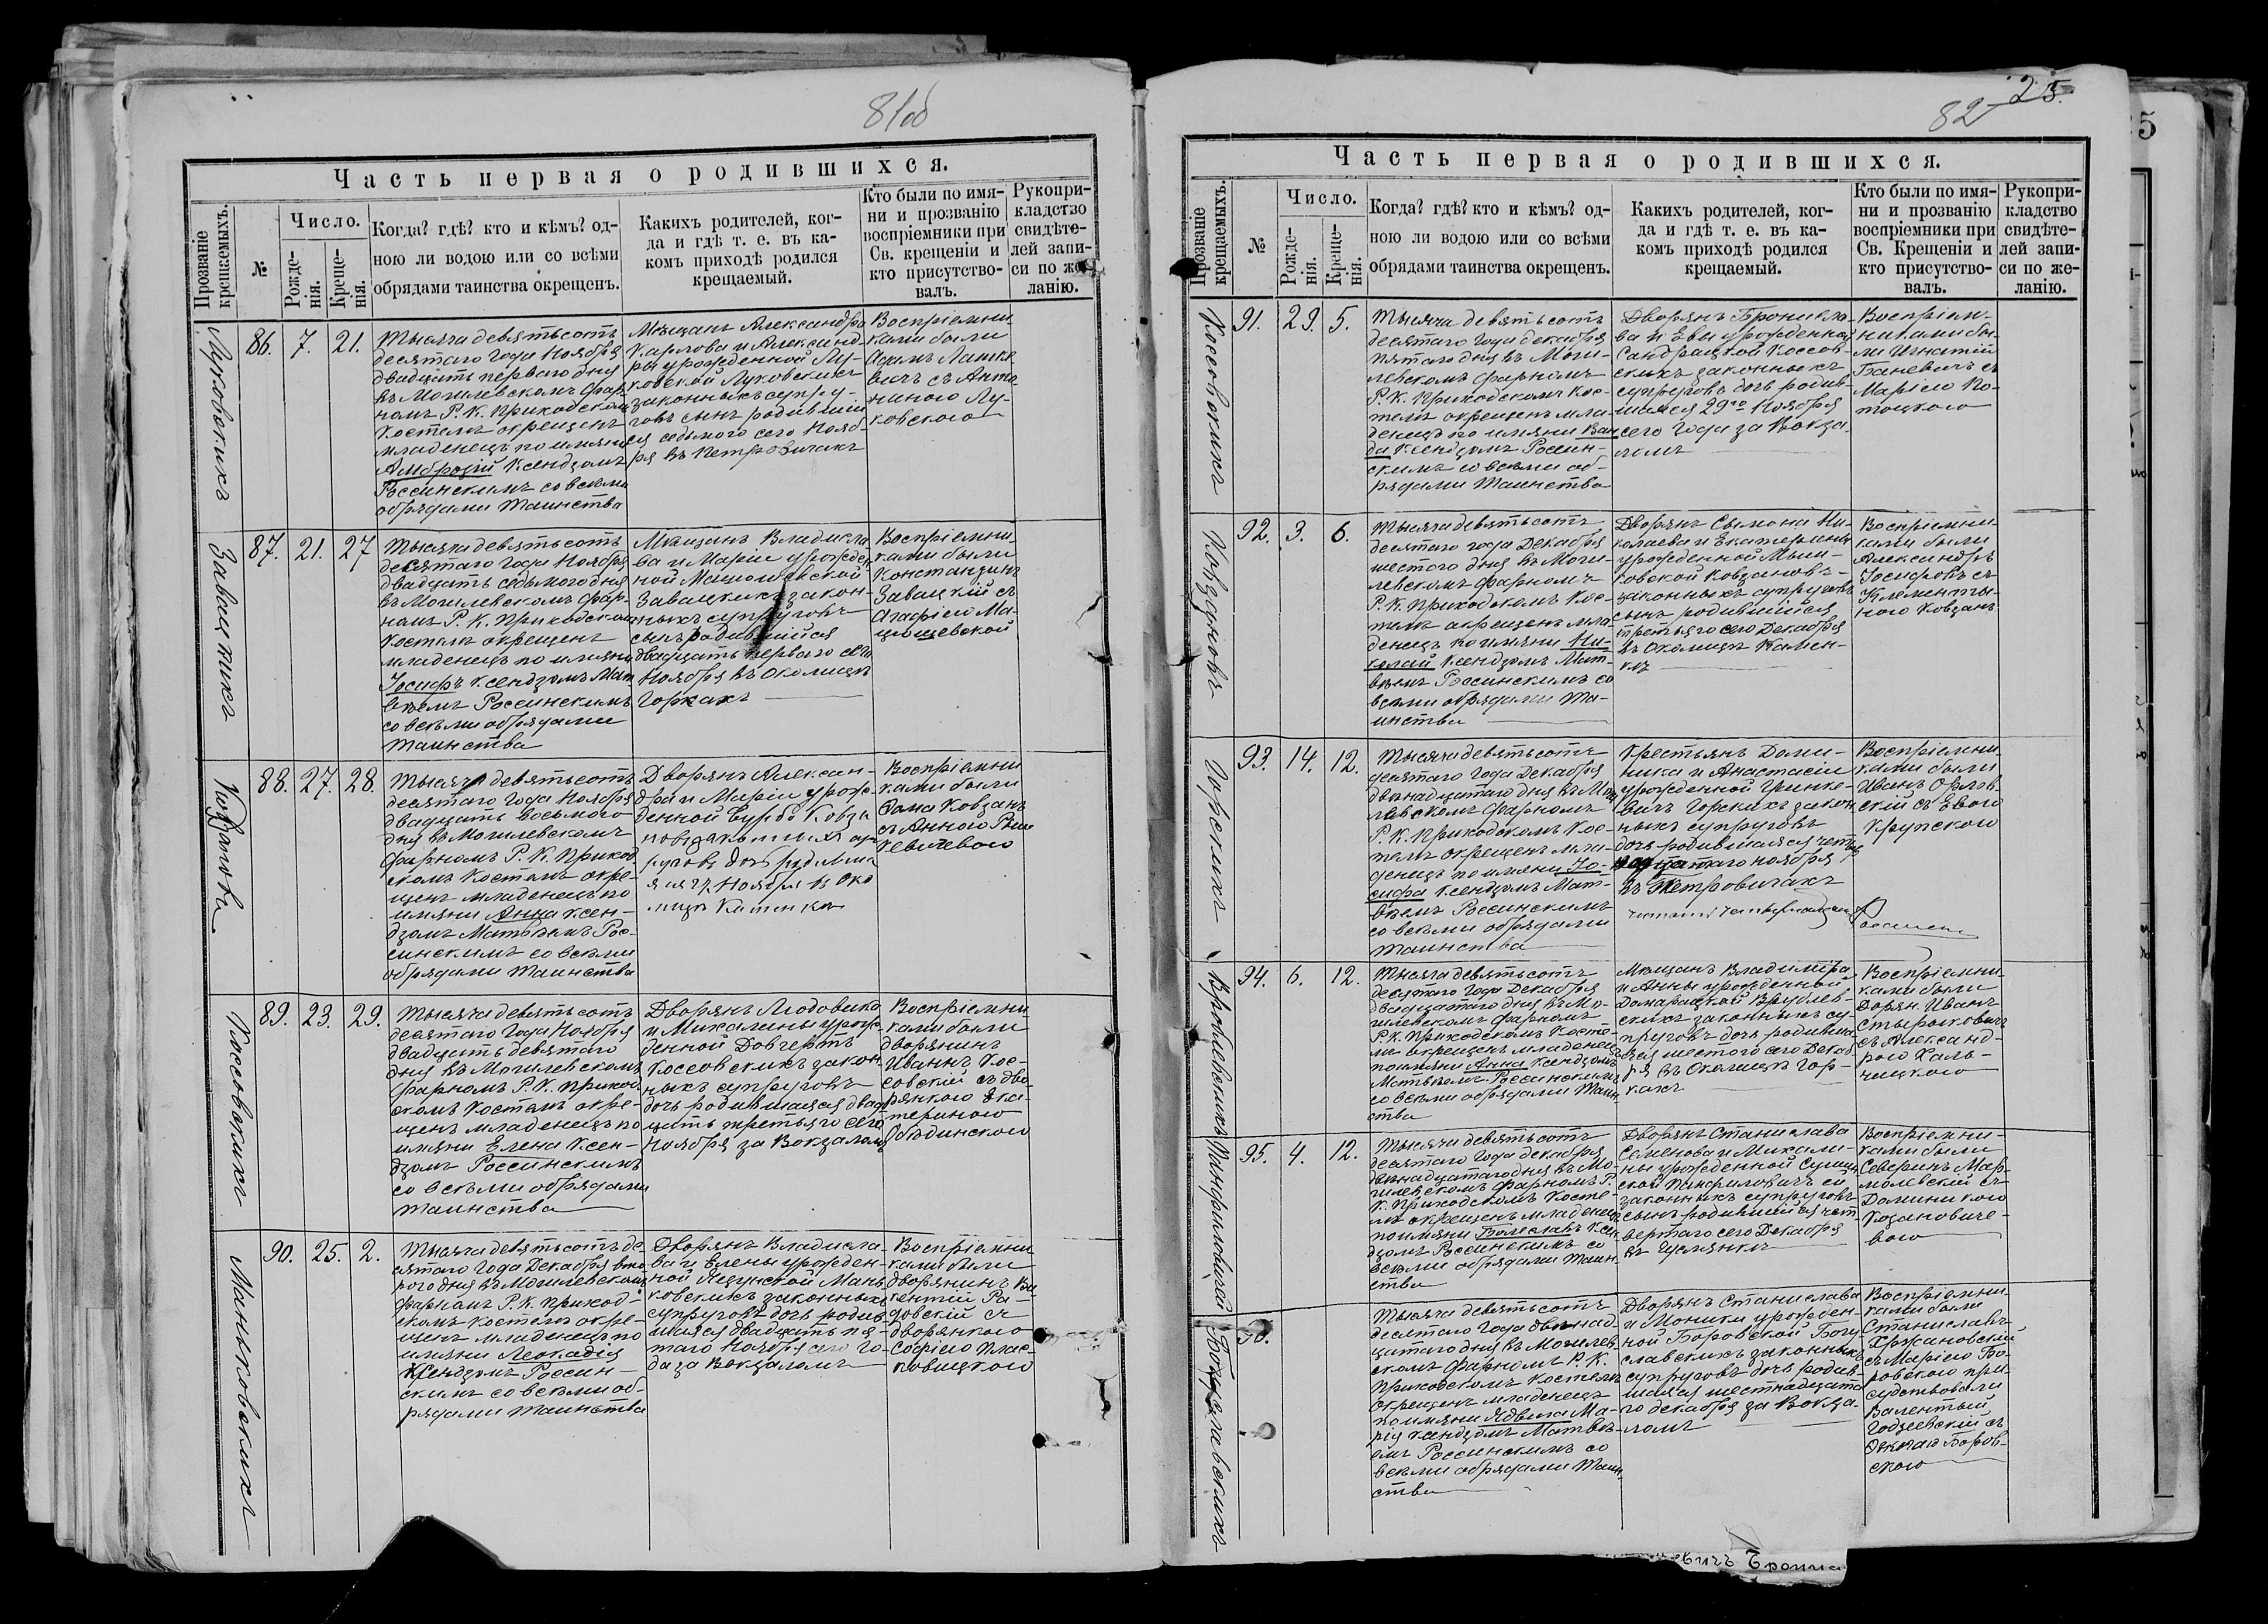 81об
Часть первая о родившихся.
Прозваніе крещаемыхъ.
№
Число.
Рожде-
нія.
Креще-
нія.
Когда? гдѣ? кто и кѣмъ? од-
ною ли водою или со всѣми
обрядами таинства окрещенъ.
Какихъ родителей, ког-
да и гдѣ т. е. въ ка-
комъ приходѣ родился
крещаемый.
Кто были по имя-
ни и прозванію
воспріемники при
Св. крещеніи и
кто присутство-
валъ.
Рукопри-
кладство
свидѣте-
лей запи-
си по же-
ланію.
Луковскихъ
86. 7. 21.
Тысяча девятьсотъ
десятаго года Ноября
двадцать перваго дня
въ Могилевскомъ фар-
номъ Р. К. Приходскомъ
Костелѣ окрещенъ
младенецъ по имяни
Амброзій Ксендзомъ
Россинскимъ со всѣми
обрядами Таинства
Мѣщанъ Александра
Карлова и Александ-
ры урожденной Лу-
ковской Луковскихъ
законныхъ супру-
говъ сынъ родившій
ся седьмого сего Нояб-
ря въ Петровичахъ
Воспріемни-
ками были
Адамъ Лашке
вичъ съ Анто
ниною Лу-
ковскою
Завацкихъ
87. 21. 27
Тысяча девятьсотъ
десятаго года Ноября
двадцать седьмого дня
въ Могилевскомъ фар-
номъ Р. К. Приходскомъ
Костелѣ окрещенъ
младенецъ по имяни
Іосифъ Ксендзомъ Мат
вѣемъ Россинскимъ
со всѣми обрядами
Таинства
Мѣщанъ Владисла
ва и Маріи урожден
ной
Завацкихъ закон-
ныхъ супруговъ
сынъ родившійся
двадцать перваго сего
Ноября въ околицѣ
Горкахъ
Воспріемни-
ками были
Константинъ
Завацкій съ
Агафіею Ма-
цюшевской
Ковзановъ
88. 27. 28.
Тысяча девятьсотъ
десятаго года Ноября
двадцать восьмого
дня въ Могилевскомъ
фарномъ Р. К. Приход
скомъ Костелѣ окре-
щенъ младенецъ по
имяни Анна Ксен-
дзомъ Матвѣемъ Рос-
синскимъ со всѣми
обрядами Таинства
Дворянъ Алексан-
дра и Маріи урож-
денной Бурбо Ковза
новъ законныхъ суп
руговъ дочь родивша
яся 27 Ноября въ око
лицѣ Каменка
Воспріемни
ками были
Фома Ковзанъ
съ Анною
Коссовскихъ
89. 23. 29.
Тысяча девятьсотъ
десятаго года Ноября
двадцать девятаго
дня въ Могилевскомъ
фарномъ Р. К. Приход
скомъ Костелѣ окре-
щенъ младенецъ по
имяни Елена Ксен-
дзомъ Россинскимъ
со всѣми обрядами
Таинства
Дворянъ Людовика
и Михалины урож-
денной Довгертъ
Коссовскихъ закон-
ныхъ супруговъ
дочь родившаяся двад
цать третьяго сего
Ноября за Вокзаломъ
Воспріемни
ками были
дворянинъ
Иванъ Кос-
совскій съ дво-
рянкою Ека-
териною
Маньковскихъ
90. 25. 2.
Тысяча девятьсотъ де
сятаго года Декабря вто
рого дня въ Могилевскомъ
фарномъ Р. К. приход-
скомъ Костелѣ окре-
щенъ младенецъ по
имяни Леокадія
Ксендзомъ Россин-
скимъ со всѣми об-
рядами Таинства
Дворянъ Владисла-
ва и Елены урожден-
ной Мань
ковскихъ законныхъ
супруговъ дочь родив-
шаяся двадцать пя-
таго Ноября сего го-
да за Вокзаломъ
Воспріемни
ками были
дворянинъ Ви
кентій Ра-
довскій съ
дворянкою
Софіею
82 25.
Часть первая о родившихся.
Прозваніе крещаемыхъ.
№
Число.
Рожде-
нія.
Креще-
нія.
Когда? гдѣ? кто и кѣмъ? од-
ною ли водою или со всѣми
обрядами таинства окрещенъ.
Какихъ родителей, ког-
да и гдѣ т. е. въ ка-
комъ приходѣ родился
крещаемый.
Кто были по имя-
ни и прозванію
воспріемники при
Св. Крещеніи и
кто присутство-
валъ.
Рукопри-
кладство
свидѣте-
лей запи-
си по же-
ланію.
Коссовскихъ
91. 29. 5.
Тысяча девятьсотъ
десятаго года декабря
пятаго дня въ Моги-
левскомъ фарномъ
Р. К. Приходскомъ Кос-
телѣ окрещенъ мла-
денецъ по имяни Ван
да Ксендзомъ Россин-
скимъ со всѣми об-
рядами Таинства
Дворянъ Бронисла-
ва и Евы урожденной
Сандрацкой Коссов-
скихъ законныхъ
супруговъ дочь родив-
шаяся 29го Ноября
сего года за Вокза-
ломъ
Воспріем-
никами бы-
ли Игнатій
Баневичъ съ
Маріею По-
тоцкою
Ковзановъ
92. 3. 6.
Тысяча девятьсотъ
десятаго года Декабря
шестого дня въ Моги-
левскомъ фарномъ
Р. К. Приходскомъ Кос-
телѣ окрещенъ мла-
денецъ по имяни Ни-
колай Ксендзомъ Мат-
вѣемъ Россинскимъ со
всѣми обрядами Та-
инства
Дворянъ Сымона Ни-
колаева и Екатерины
урожденной Мыш-
ковской Ковзановъ-
законныхъ супруговъ
сынъ родившійся
третьяго сего Декабря
въ околицѣ Камен-
кѣ
Воспріемни-
ками были
Александръ
Іосифовъ съ
Клементи-
ною Ковзанъ
Горскихъ
93. 14. 12.
Тысяча девятьсотъ
десятаго года Декабря
двѣнадцатаго дня въ Моги
левскомъ фарномъ
Р. К. Приходскомъ Кос-
телѣ окрещенъ мла-
денецъ по имяни Іо-
сифа Ксендзомъ Мат-
вѣемъ Россинскимъ
со всѣми обрядами
Таинства
Крестьянъ Доми-
ника и Анастасіи
урожденной Гринке-
вичъ Горскихъ закон
ныхъ супруговъ
дочь родившаяся четыр
надцатаго ноября
въ Петровичахъ
Воспріемни
ками были
Иванъ Орлов-
скій съ Евою
Крупскою
Врублевскихъ
94. 6. 12.
Тысяча девятьсотъ
десятаго года Декабря
двѣнадцатаго дня въ Мо-
гилевскомъ фарномъ
Р.К. Приходскомъ Косте-
лѣ окрещенъ младенецъ
по имяни Анна Ксендзомъ
Матвѣемъ Россинскимъ
со всѣми обрядами Таин-
ства
Мѣщанъ Владиміра
и Анны урожденной
Домарацкой Врублев-
скихъ законныхъ су-
пруговъ дочь родивша-
яся шестого сего Декаб
ря въ околицѣ Гор-
кахъ
Воспріемни-
ками были
Дворян. Иванъ
съ Александ-
рою Халь-
чицкою
Панфиловичей
95. 4. 12.
Тысяча девятьсотъ
десятаго года декабря
двѣнадцатаго дня въ Мо-
гилевскомъ фарномъ Р.
К. Приходскомъ Косте-
лѣ окрещенъ младенецъ
по имяни Болеславъ Ксен
дзомъ Россинскимъ со
всѣми обрядами Таин-
ства
Дворянъ Станислава
Семенова и Михали-
ны урожденной
Панфиловичъ
законныхъ супруговъ
сынъ родившійся чет-
вертаго сего Декабря
въ
Воспріемни-
ками были
Северинъ Мар-
молевскій съ
Доминикою
Козановиче-
вою
Богуславскихъ
96.
Тысяча девятьсотъ
десятаго года двѣнад-
цатаго дня въ Могилев-
скомъ фарномъ Р. К.
Приходскомъ Костелѣ
окрещенъ младенецъ
по имяни Ядвига Ма-
рія Ксендзомъ Матвѣ-
емъ Россинскимъ со
всѣми обрядами Таин-
ства
Дворянъ Станислава
и Моники урожден-
ной Боровской Богу
славскихъ законныхъ
супруговъ дочь родив-
шаяся шестнадцата
го декабря за Вокза-
ломъ
Воспріемни-
ками были
Станиславъ
Хржановскій
съ Маріею Бо-
ровскою при-
судствовали
Валентый
Годзевскій съ
Боров-
скою